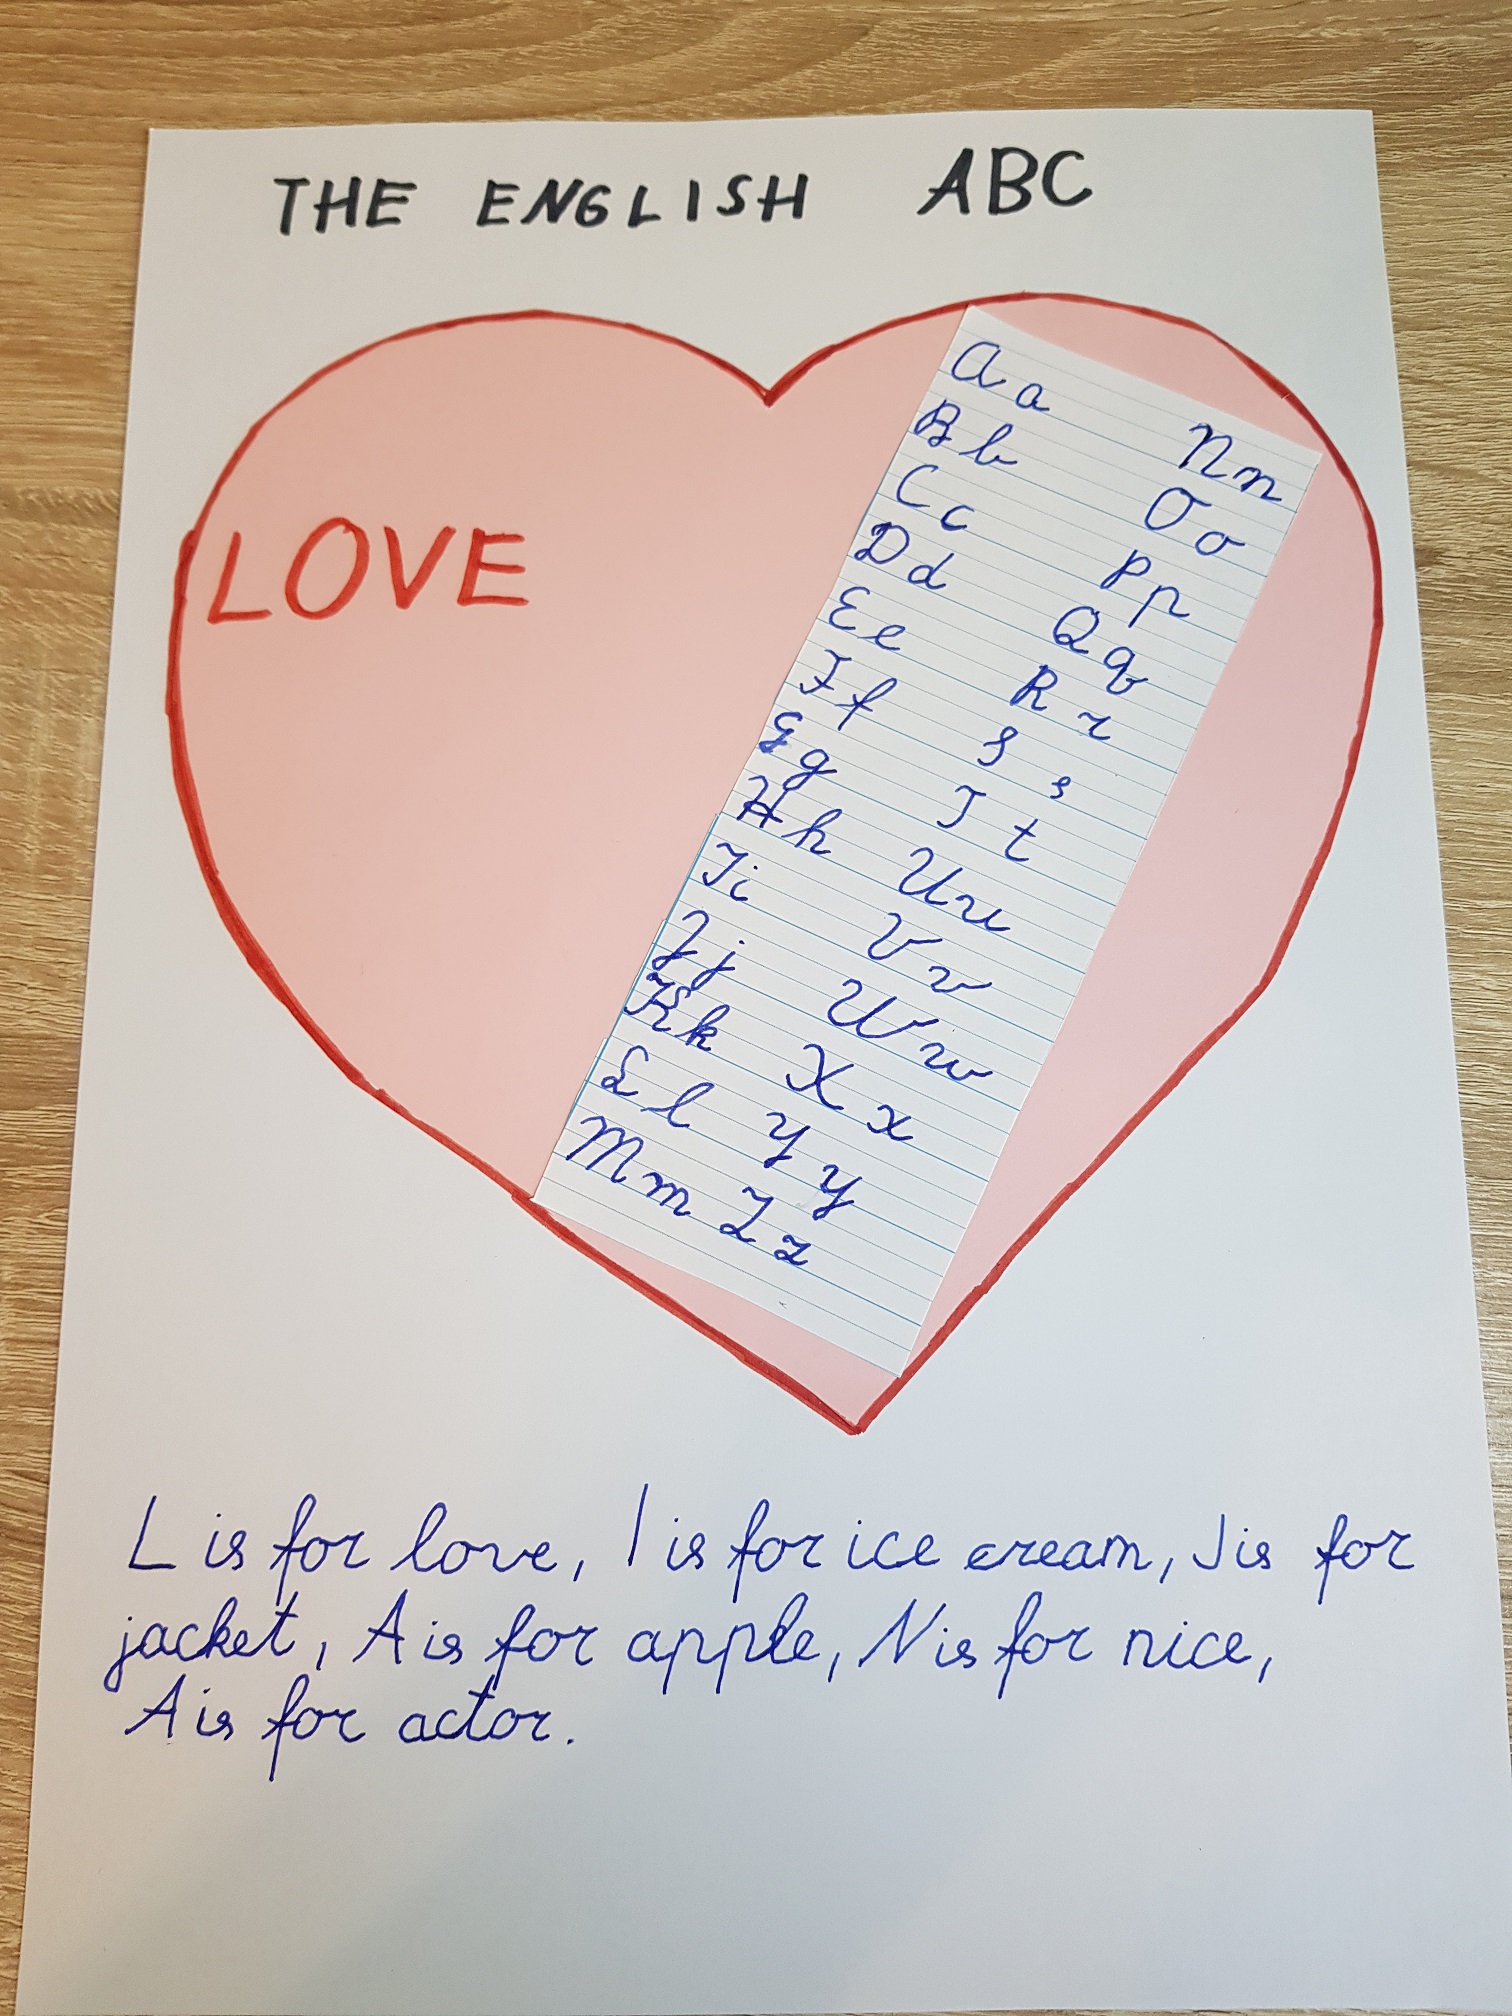 THE ENGLISH ABC
LOVE
Aa
Bb
Cc
Dd
Ee
Ff
Gg
Hh
Ii
Jj
Kk
Ll
Mm
Nn
Oo
Pp
Qq
Rr
Ss
Tt
Uu
Vv
Ww
Xx
Yy
Zz
L is for love, I is for ice cream, J is for
jacket, A is for apple, N is for nice,
A is for actor.